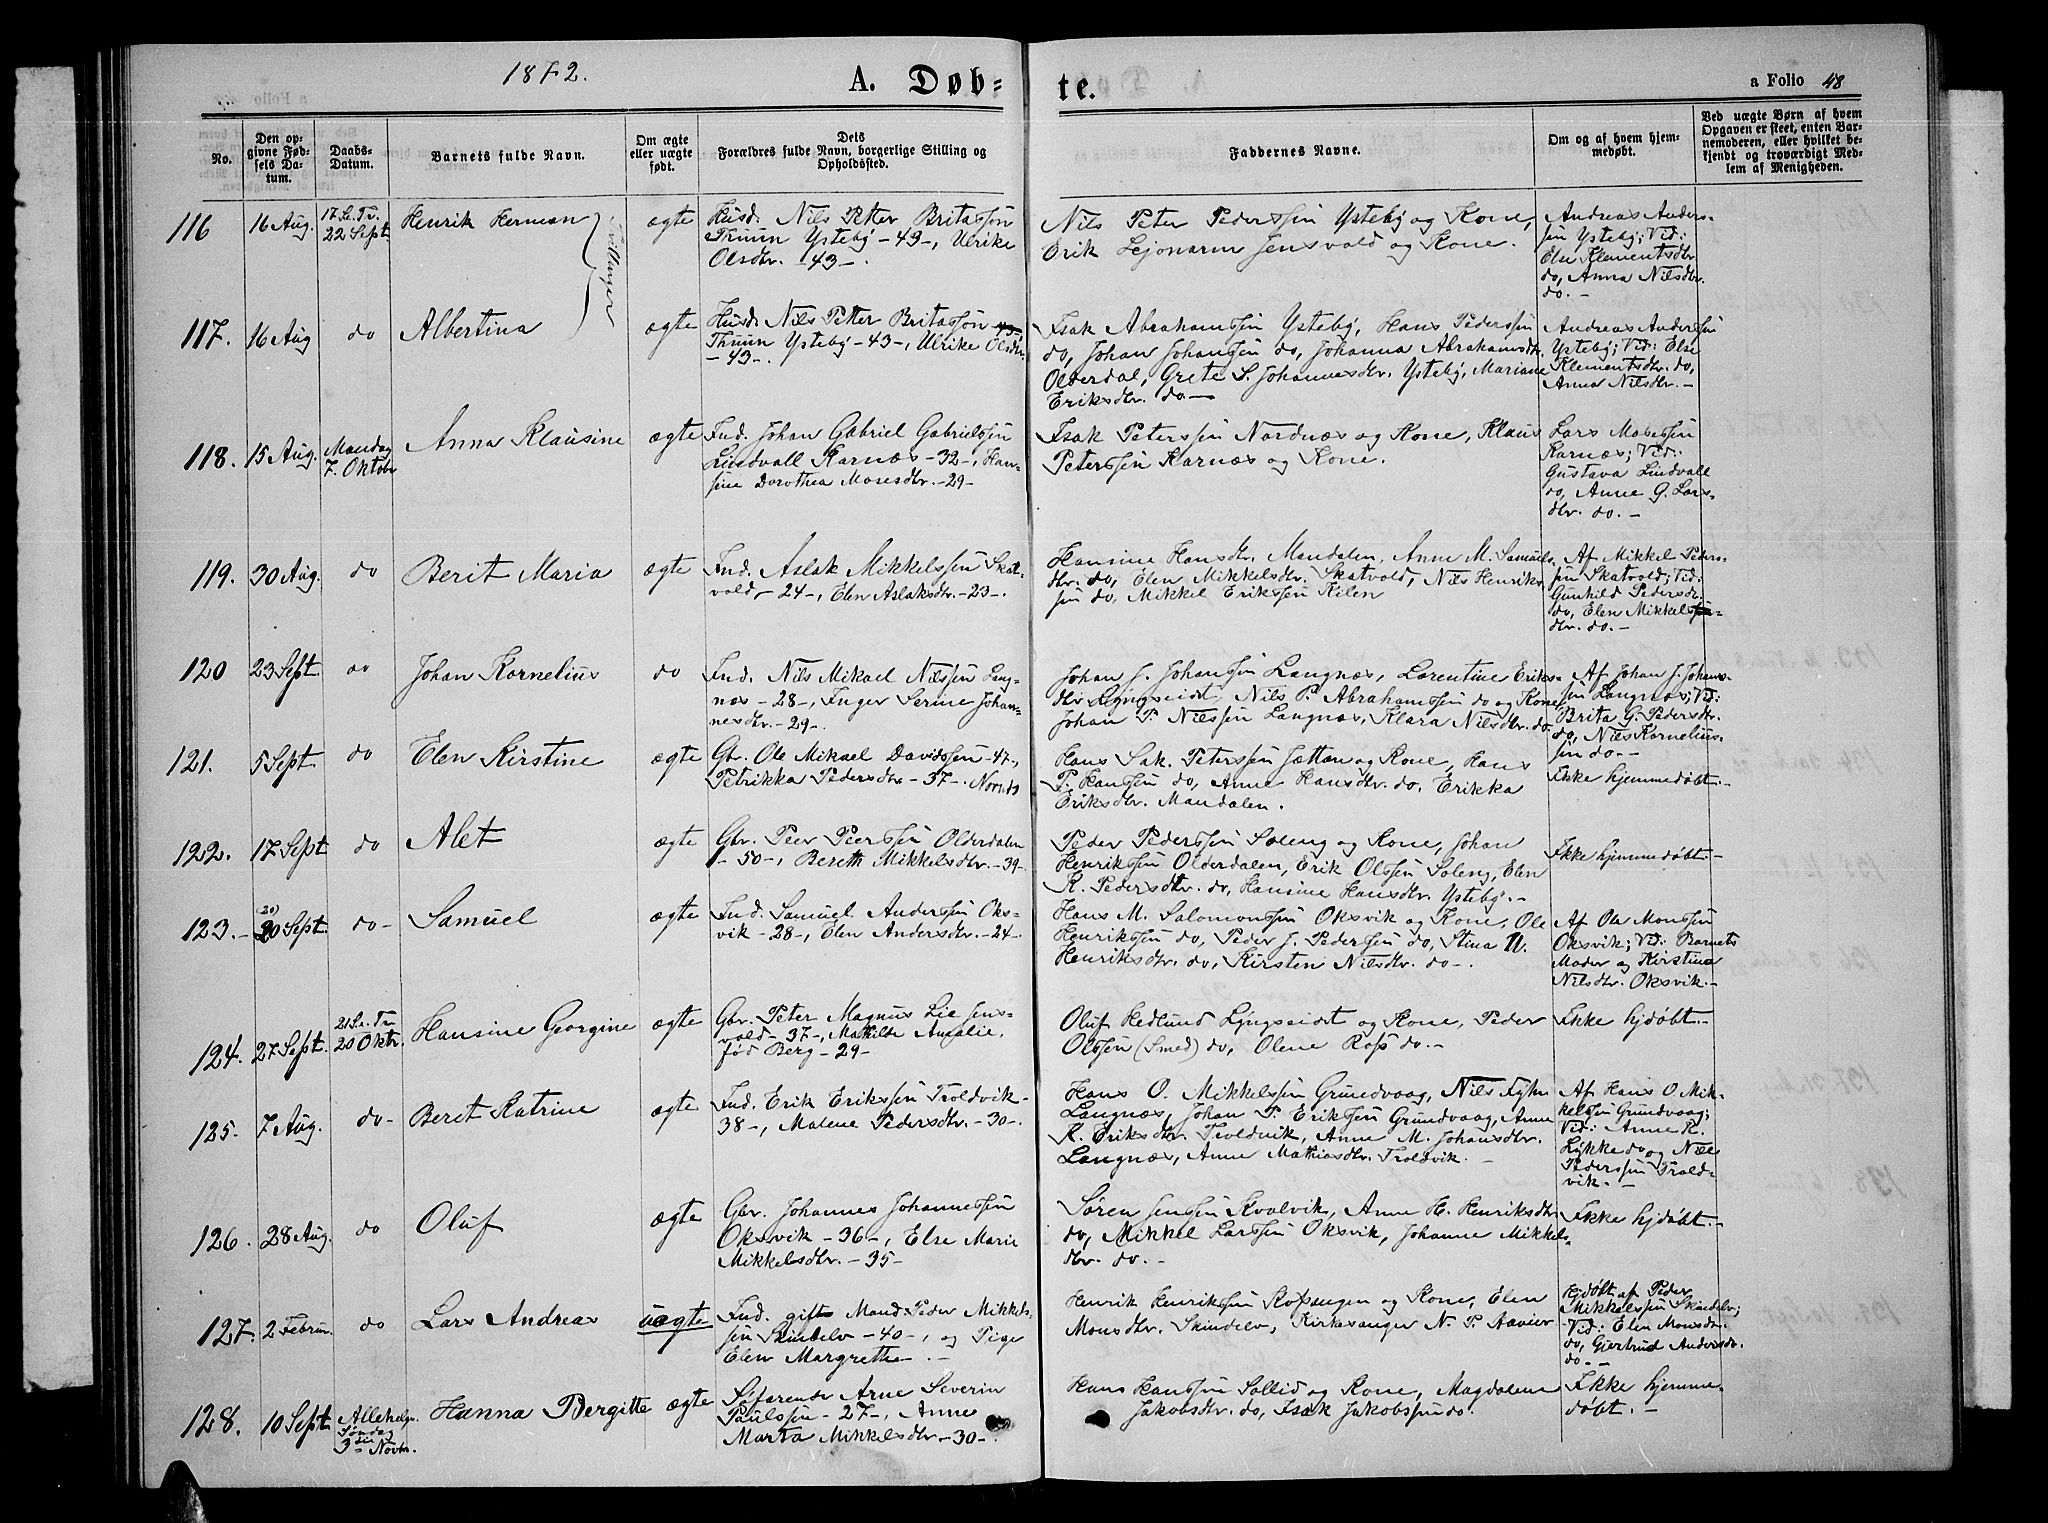 1872.
A. Døb-
te.
a Folio 48
No.
Den op-
givne Fød-
sels Da-
tum.
Daabs-
Datum.
Barnets fulde Navn.
Om ægte
eller uægte
født.
Dets
Forældres fulde Navn, borgerlige Stilling og
Opholdssted.
Faddernes Navne.
Om og af hvem hjem-
medøbt.
Ved uægte Børn af hvem
Opgaven er skeet, enten Bar-
nemoderen, eller hvilket be-
kjendt og troværdigt Med-
lem af Menigheden.
116
16 Aug.
17 S. e. Tr.
22 Sept
Henrik Herman
Tvillinger
ægte
Husd. Nils Petter Britasøn
Thuun Ysteby - 43 -, Ulrike
Olsdtr. - 43 -.
Nils Peter Pederssen Ysteby og Kone,
Erik Lejonarm Jensvold og Kone.
Andreas Anders-
sen Ysteby; Vid:
Else Klementsdtr
do, Anna Nilsdtr.
do. -
117.
16 Aug
do
Albertina
ægte
Husd. Nils Petter Britasøn 43
Thuun Ysteby - 43 -, Ulrike Olsdtr.
- 43 -.
Isak Abrahamssen Ysteby, Hans Pederssen
do, Johan Johanssen do, Johanna Abrahamsdtr.
Olderdal, Grete S. Johannesdtr. Ysteby, Mariane
Eriksdtr. do -
Andreas Anderssen
Ysteby; Vid: Else
Klementsdtr. do,
Anna Nilsdtr. -
118.
15 Aug.
Mandag
7. Oktober
Anna Klausine
ægte
Ind. Johan Gabriel Gabrielssen
Lindvall Karnæs - 32 -, Han-
sine Dorothea Mosesdtr. - 29 -
Isak Peterssen Nordnæs og Kone, Klaus
Peterssen Karnæs og Kone.
Lars Mosessen
Karnæs; Vid:
Gustava Lindvall
do, Anne G. Lars-
dtr. do. -
119.
30 Aug.
do
Berit Maria
ægte
Ind. Aslak Mikkelssen Skat-
vold - 24 -, Elen Aslaksdtr. - 23 -.
Hansine Hansdtr. Mandalen, Anne M. Samuels-
dtr. do, Elen Mikkelsdtr. Skatvold, Nils Henriks-
sen do, Mikkel Erikssen Kilen
Af Mikkel Peders-
sen Skatvold; Vid:
Gunhild Pedersdtr.
do, Elen Mikkels
dtr. do. -
120
23 Sept
do
Johan Kornelius
do
Ind. Nils Mikael Nilssen Lang-
næs - 28 -, Inger Serine Johan-
nesdtr. - 29 -.
Johan J. Johanssen Langnæs, Lorentine Eriks-
dtr Lyngseidet, Nils P. Abrahamssen do og Kone,
Johan P. Nilssen Langnæs, Klara Nilsdtr. do.
Af Johan J. Johans-
sen Langnæs; Vid:
Brita G. Pedersdtr.
do, Nils Kornelius-
sen do. -
121.
5 Sept.
do
Elen Kirstine
ægte
Gbr. Ole Mikael Davidssen - 47 -,
Petrikka Pedersdtr. - 37 -.
Hans Sak. Peterssen Jættan og Kone, Hans
P. Hanssen do, Anne Hansdtr. do, Erikka
Eriksdtr. Mandalen.
Ikke hjemmedøbt. -
122.
17 Sept
do
Alet
ægte
Gbr. Peer Peerssen Olderdalen
- 50 -, Bereth Mikkelsdtr. - 39 -.
Peder Pederssen Soleng og Kone, Johan
Henrikssen Olderdalen, Erik Olssen Soleng, Elen
K. Pedersdtr. do, Hansine Hansdtr. Ysteby. -
Ikke hjemmedøbt. -
123. -
(20)
20 Sept.
do -
Samuel
ægte
Ind. Samuel Anderssen Oks-
vik - 28 -, Elen Andersdtr. - 24 -.
Hans M. Salomonssen Oksvik og Kone, Ole
Henrikssen do, Peder J. Pederssen do, Stina N.
Henriksdtr. do, Kirsten Nilsdtr. do -.
Af Ole Monssen
Oksvik; Vid: Barnets
Moder og Kirstina
Nilsdtr. Oksvik. -
124.
27 Sept.
21 S. e. Tr
20 Oktr.
Hansine Georgine
ægte
Gbr. Peter Magnus Lie Jens-
vold - 37 -, Mathilde Amalie,
fød Berg - 29 -
Oluf Hedlund Lyngseidet og Kone, Peder
Olssen (Smed) do, Olene Ross do. -
Ikke hjdøbt. -
125.
7 Aug.
do -
Beret Katrine
ægte
Ind. Erik Erikssen Troldvik -
38 -, Malene Pedersdtr. - 30 -.
Hans O. Mikkelssen Grundvaag, Nils Fyhn
Langnæs, Johan P. Erikssen Grundvaag, Anne
K. Eriksdtr. Troldvik, Anne M. Johansdtr.
Langnæs, Anne Mathiasdtr. Troldvik. -
Af Hans O. Mik-
kelssen Grundvaag;
Vid: Anne K.
Lykke do og Nils
Pederssen Trold-
vik. -
126.
28 Aug.
do
Oluf
ægte
Gbr. Johannes Johannessen
Oksvik - 36 -, Else Marie
Mikkelsdtr. - 35 -
Søren Jenssen Kvalvik, Anne H. Henriksdtr
do, Mikkel Larssen Oksvik, Johanne Mikkels-
dtr. do. -
Ikke hjdøbt. -
127.
2 Februar.
do
Lars Andreas
uægte
Ind. gift Mand Peder Mikkels-
sen Skindelv - 40 -, og Pige
Elen Margrethe -
Henrik Henrikssen Rossangen og Kone, Elen
Monsdtr. Skindelv, Kirkesanger N. P. Aavier
Hjdøbt af Peder
Mikkelssen Skindelv;
Vid: Elen Monsdtr.
do, Gjertrud Andersdtr.
do. -
128.
10 Sept
Allehelgs
Søndag
3die Novbr.
Hanna Bergitte
ægte
Søfarende Arne Severin
Paulssen - 27 -, Anne
Marta Mikkelsdtr - 30 -.
Hans Hanssen Sollid og Kone, Magdalena
Jakobsdtr. do, Isak Jakobssen do.
Ikke hjemme-
døbt. -